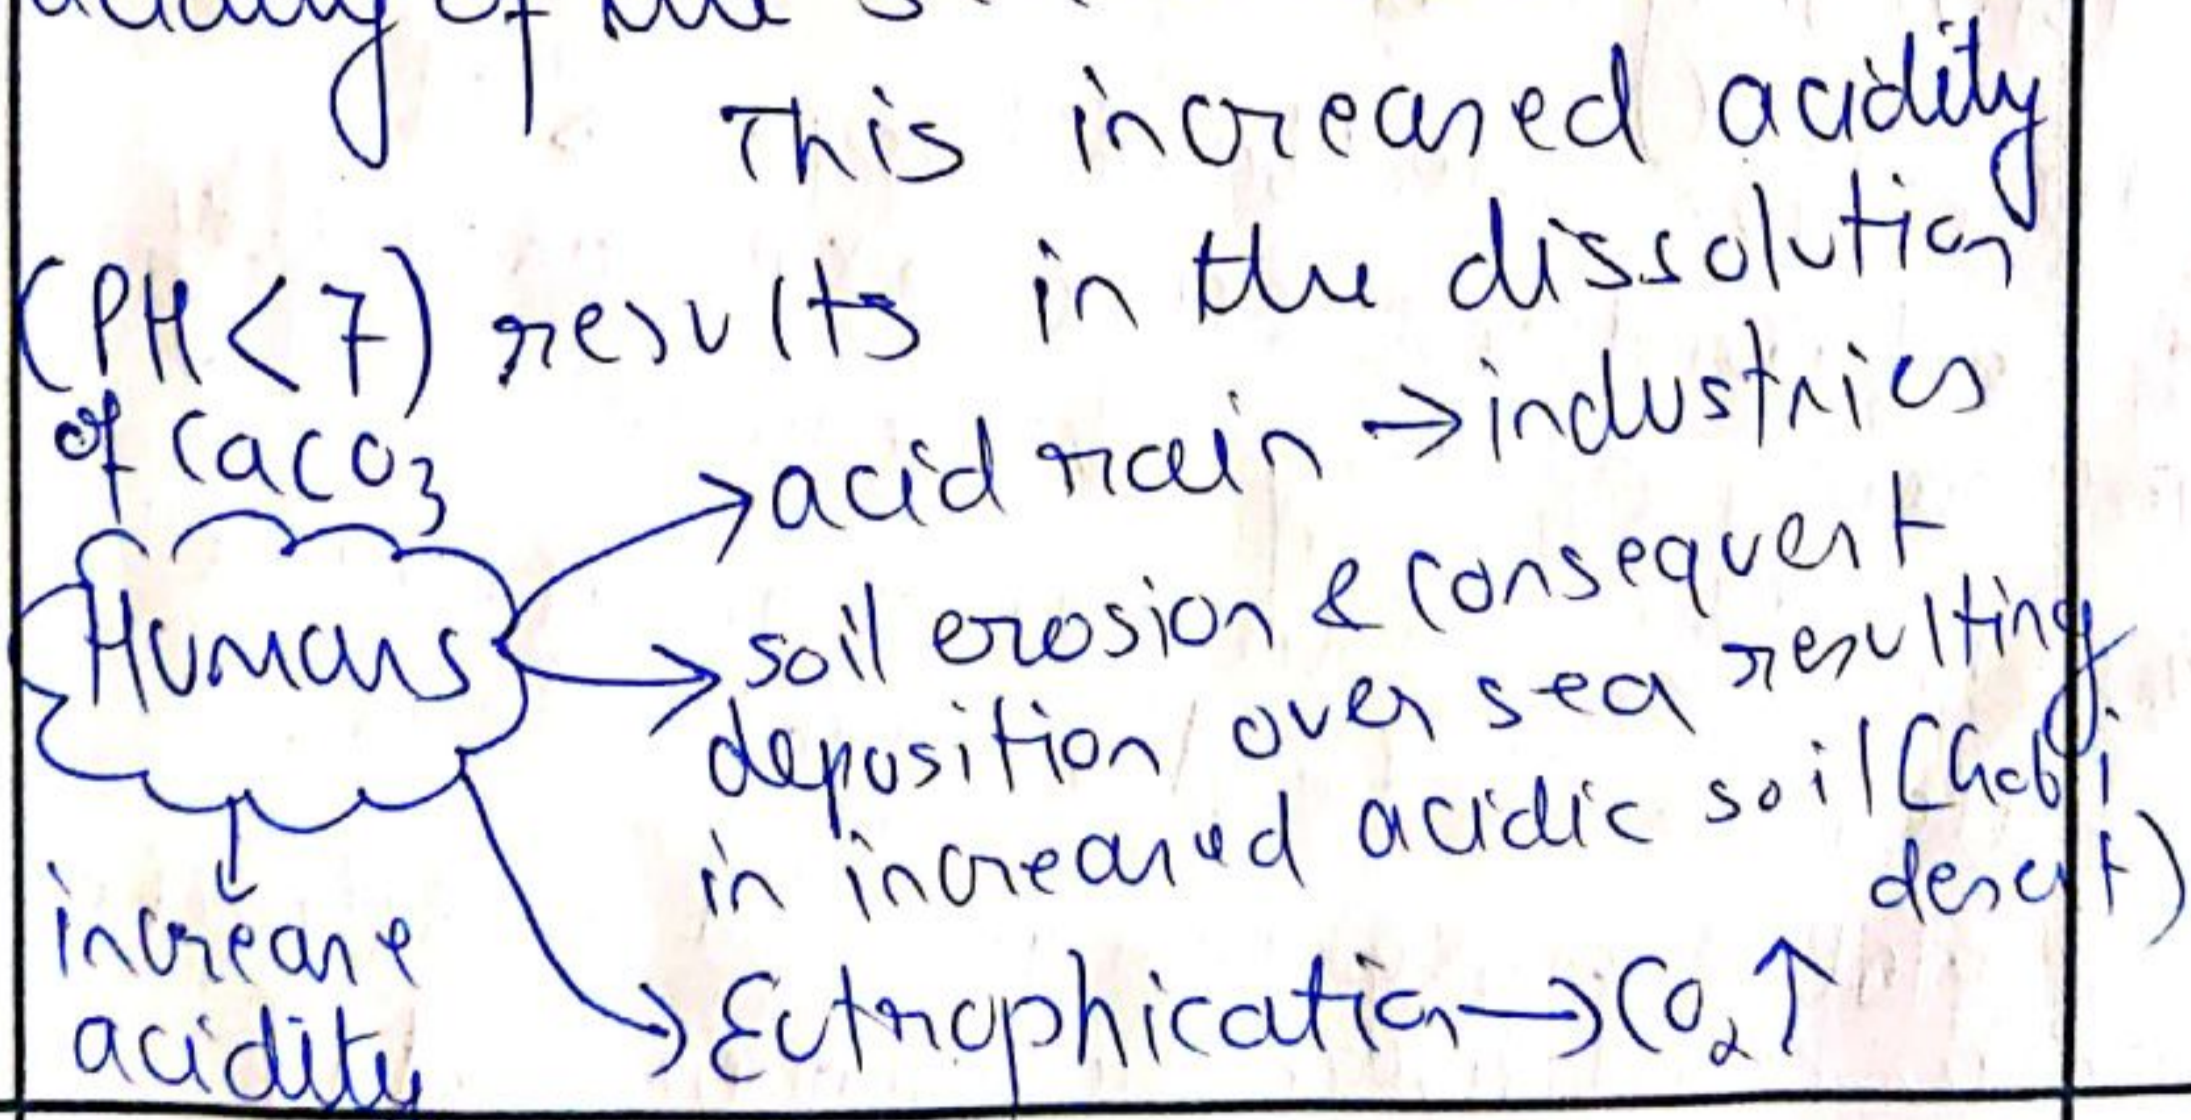 acidity of the
This increased acidity
(PH<7) results in the dissolution
of CaCO3
Humans
→acid rain →industries
→soil erosion & consequent
deposition over sea resulting
in increased acidic soil (Gobi
desert)
→Eutrophication→CO2↑
↓
increase
acidity